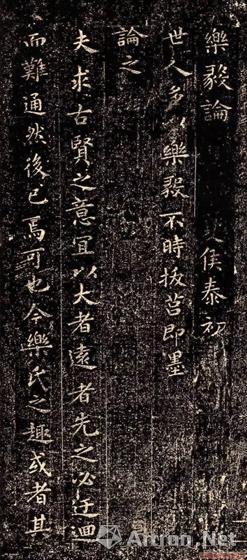 樂毅論 侯泰初
世人多以樂毅不時拔莒即墨
論之
夫求古賢之意宜以大者遠者先之必迂迴
而難通然後已焉可也今樂氏之趣或者其
Artron.Net